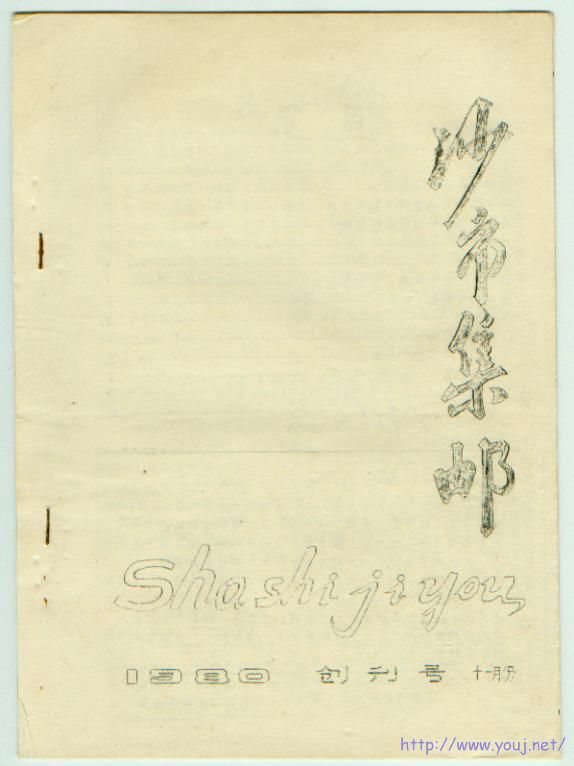 沙市集邮
Sha shi ji you
1980 创刊号 十一月份
http://www.youj.net/